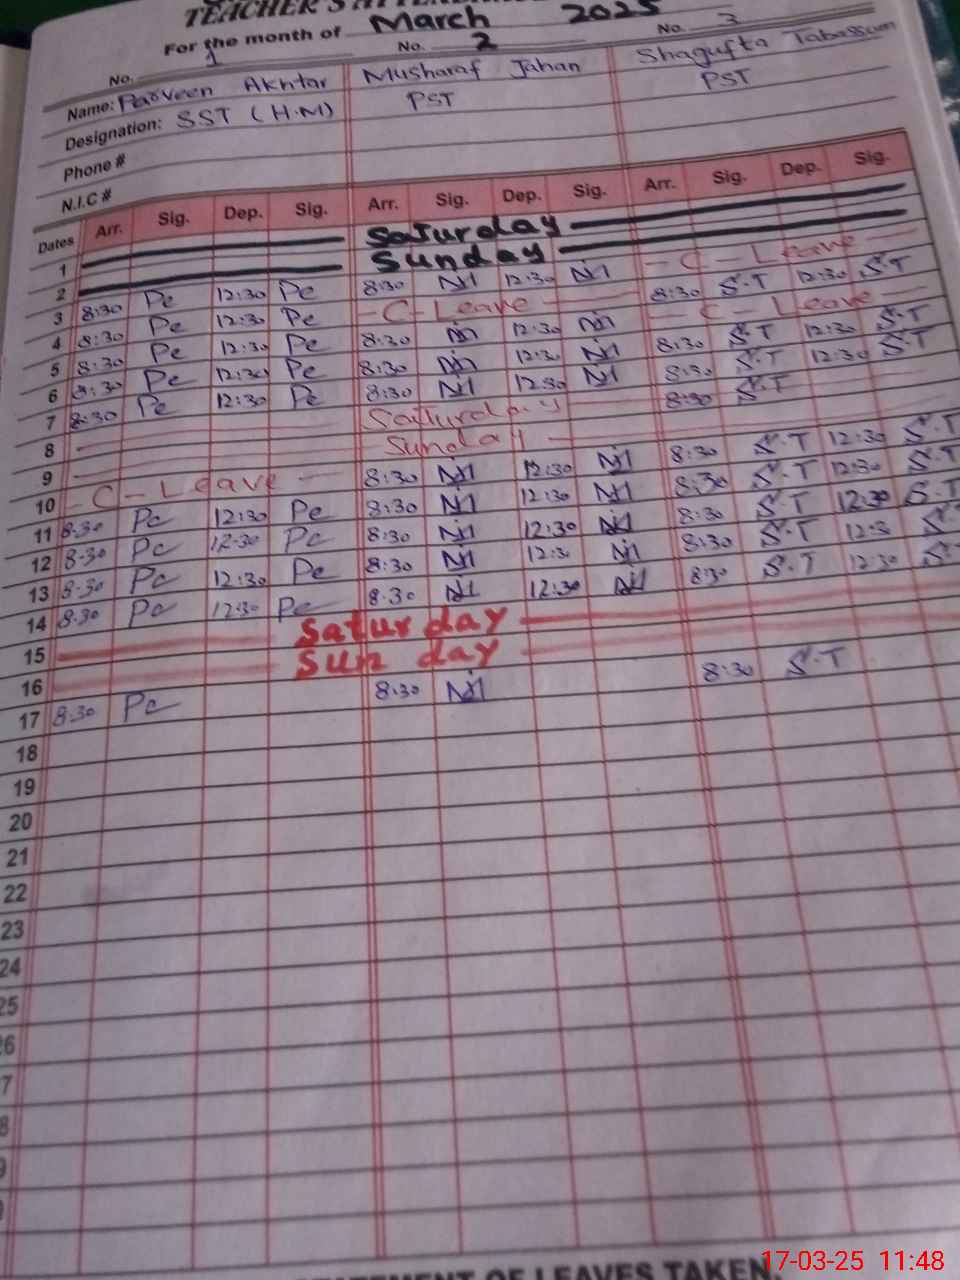 TEACHER'S
For the month of March 2025
No. 1 No. 2 No. 3
Name: Parveen Akhtar Musharaf Jahan Shagufta Tabassum
Designation: SST (H.M) PST PST
Phone #
N.I.C #
Dates Arr. Sig. Dep. Sig. Arr. Sig. Dep. Sig. Arr. Sig. Dep. Sig.
1 Saturday
2 Sunday
3 8:30 Pe 12:30 Pe 8:30 12:30 - C - Leave
4 8:30 Pe 12:30 Pe - C - Leave 8:30 S.T 12:30 S.T
5 8:30 Pe 12:30 Pe 8:30 12:30 - C - Leave
6 8:30 Pe 12:30 Pe 8:30 12:30 8:30 S.T 12:30 S.T
7 8:30 Pe 12:30 Pe 8:30 12:30 8:30 S.T 12:30 S.T
8 Saturday 8:30 S.T
9 Sunday
10 - C - Leave - 8:30 12:30 8:30 S.T 12:30 S.T
11 8:30 Pe 12:30 Pe 8:30 12:30 8:30 S.T 12:30 S.T
12 8:30 Pe 12:30 Pe 8:30 12:30 8:30 S.T 12:30 S.T
13 8:30 Pe 12:30 Pe 8:30 12:30 8:30 S.T 12:3 S.
14 8:30 Pe 12:30 Pe 8:30 12:30 8:30 S.T 12:30 S.
15 Saturday
16 Sunday
17 8:30 Pe 8:30 8:30 S.T
18
19
20
21
22
23
24
25
6
7
8
9
OF LEAVES TAKEN
17-03-25 11:48